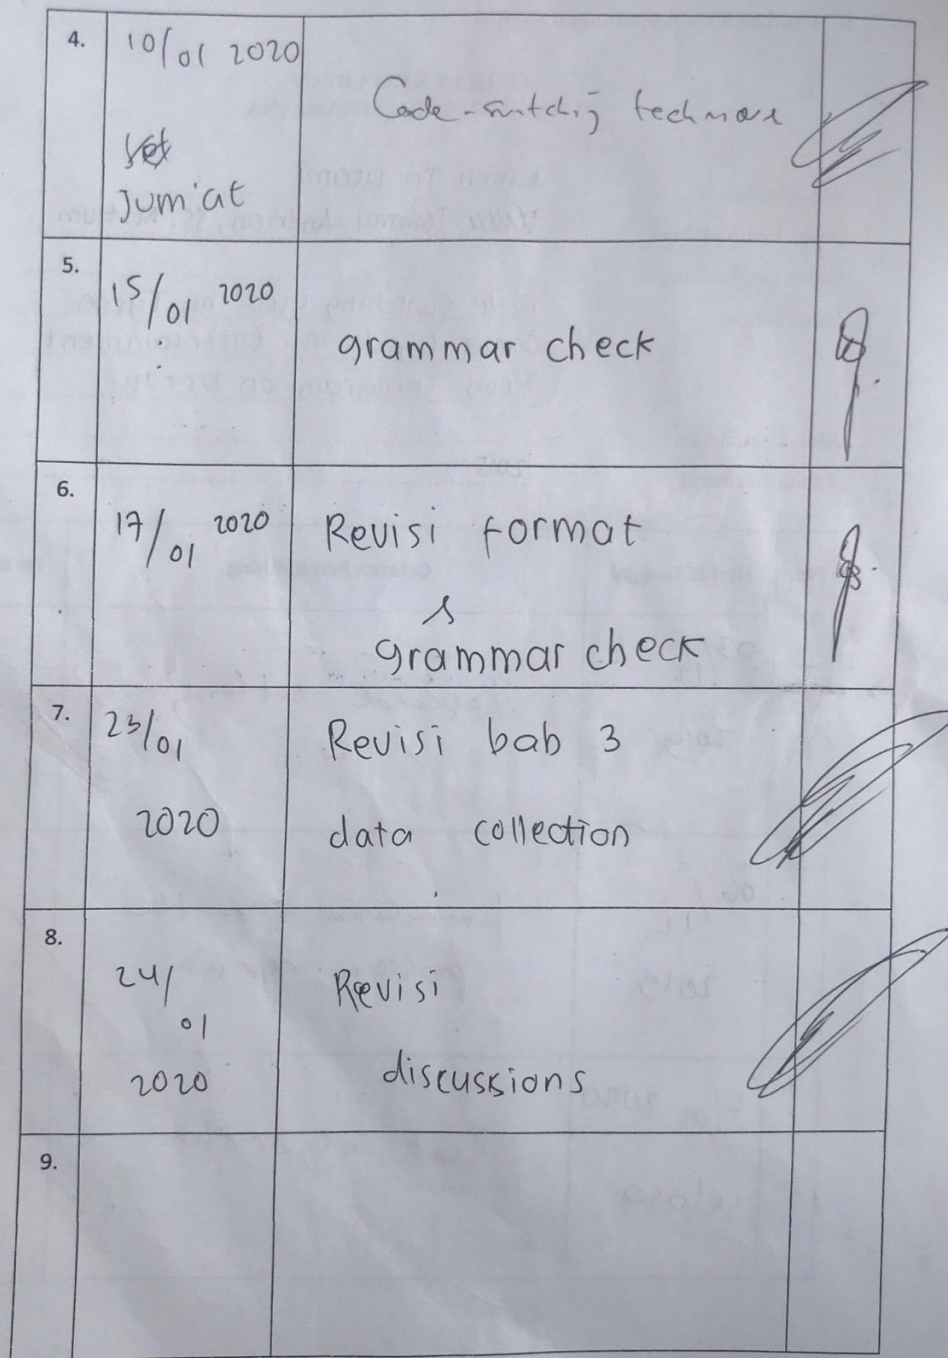 4.
10/01 2020
Jum'at
Code-switching
5.
15/01 2020
grammar check
6.
17/01 2020
Revisi format
&
grammar check
7.
23/01
2020
Revisi bab 3
data collection
8.
24/
01
2020
Revisi
discussions
9.